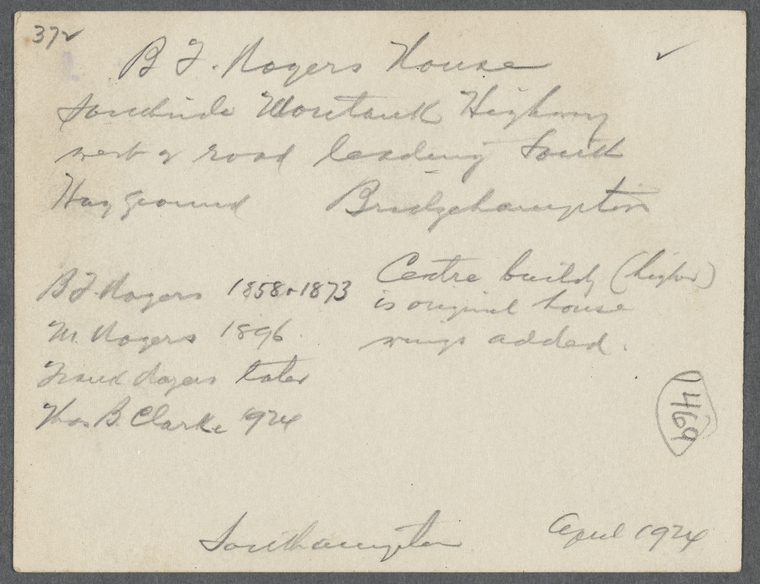 37✓
✓
B F. Rogers House
Southside Montauk Highway
west of road leading South
Hay ground Bridgehampton
B F. Rogers 1858 + 1873
M. Rogers 1896
Frank Rogers later
Thos B. Clarke 1924
Centre buildg (higher)
is original house
wings added.
1469
Southampton April 1924